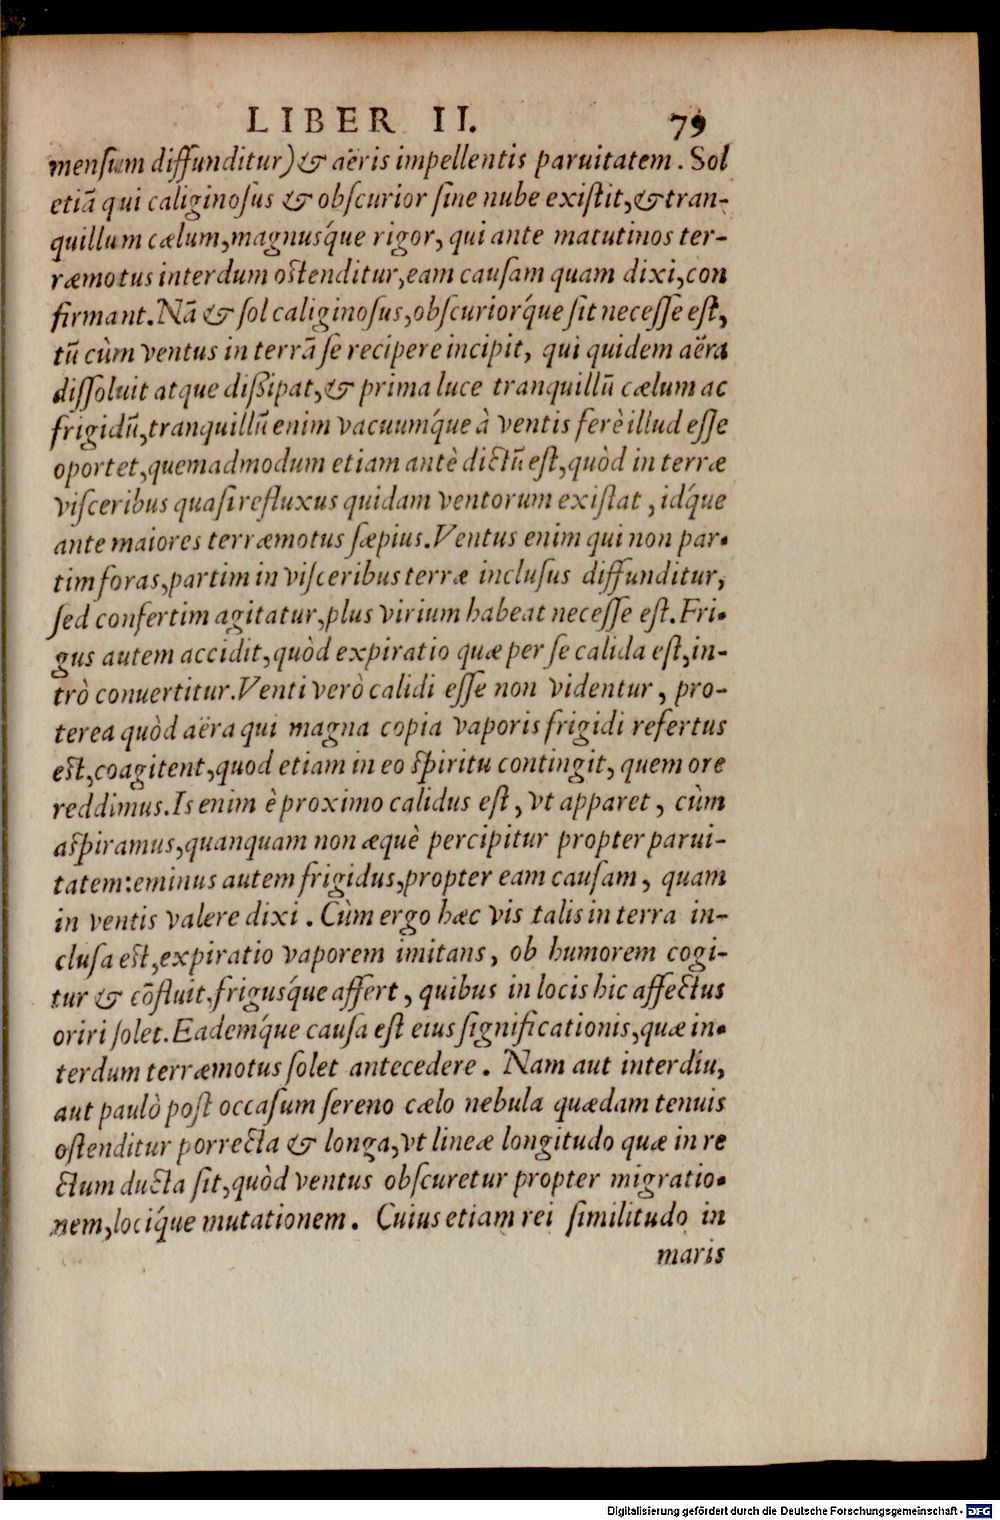 LIBER II. 79
mensum diffunditur) & aëris impellentis paruitatem. Sol
etiā qui caliginosus & obscurior sine nube existit, & tran-
quillum cælum, magnusq́ue rigor, qui ante matutinos ter-
ræmotus interdum ostenditur, eam causam quam dixi, con
firmant. Nā & sol caliginosus, obscuriorq́ue sit necesse est,
tū cùm ventus in terrā se recipere incipit, qui quidem aëra
dissoluit atque dißipat, & prima luce tranquillū cælum ac
frigidū, tranquillū enim vacuumq́ue à ventis ferè illud esse
oportet, quemadmodum etiam antè dictū est, quòd in terræ
visceribus quasi refluxus quidam ventorum existat, idq́ue
ante maiores terræmotus sæpius. Ventus enim qui non par-
tim foras, partim in visceribus terræ inclusus diffunditur,
sed confertim agitatur, plus virium habeat necesse est. Fri-
gus autem accidit, quòd expiratio quæ per se calida est, in-
trò conuertitur. Venti verò calidi esse non videntur, pro-
terea quòd aëra qui magna copia vaporis frigidi refertus
est, coagitent, quod etiam in eo spiritu contingit, quem ore
reddimus. Is enim è proximo calidus est, vt apparet, cùm
aspiramus, quanquam non æquè percipitur propter parui-
tatem: eminus autem frigidus, propter eam causam, quam
in ventis valere dixi. Cùm ergo hæc vis talis in terra in-
clusa est, expiratio vaporem imitans, ob humorem cogi-
tur & cōfluit, frigusq́ue affert, quibus in locis hic affectus
oriri solet. Eademq́ue causa est eius significationis, quæ in-
terdum terræmotus solet antecedere. Nam aut interdiu,
aut paulò post occasum sereno cælo nebula quædam tenuis
ostenditur porrecta & longa, vt lineæ longitudo quæ in re
ctum ducta sit, quòd ventus obscuretur propter migratio-
nem, lociq́ue mutationem. Cuius etiam rei similitudo in
maris
Digitalisierung gefördert durch die Deutsche Forschungsgemeinschaft - DFG